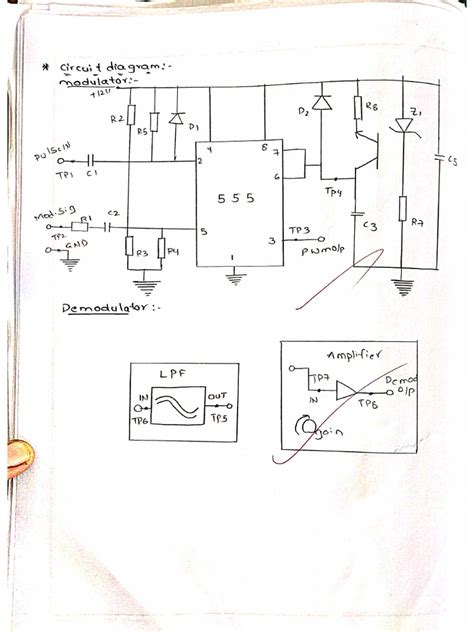 * Circuit diagram:-
modulator:-
+12V
R2
R5
D1
D2
R6
Z1
C5
4
8
7
6
2
5
3
1
555
Pulse IN
TP1
C1
Mod. Sig
R1
C2
TP2
GND
R3
R4
TP3
PWM O/P
TP4
C3
R7
Demodulator:-
LPF
IN
OUT
TP6
TP5
Amplifier
TP7
IN
Demod
O/P
TP8
gain